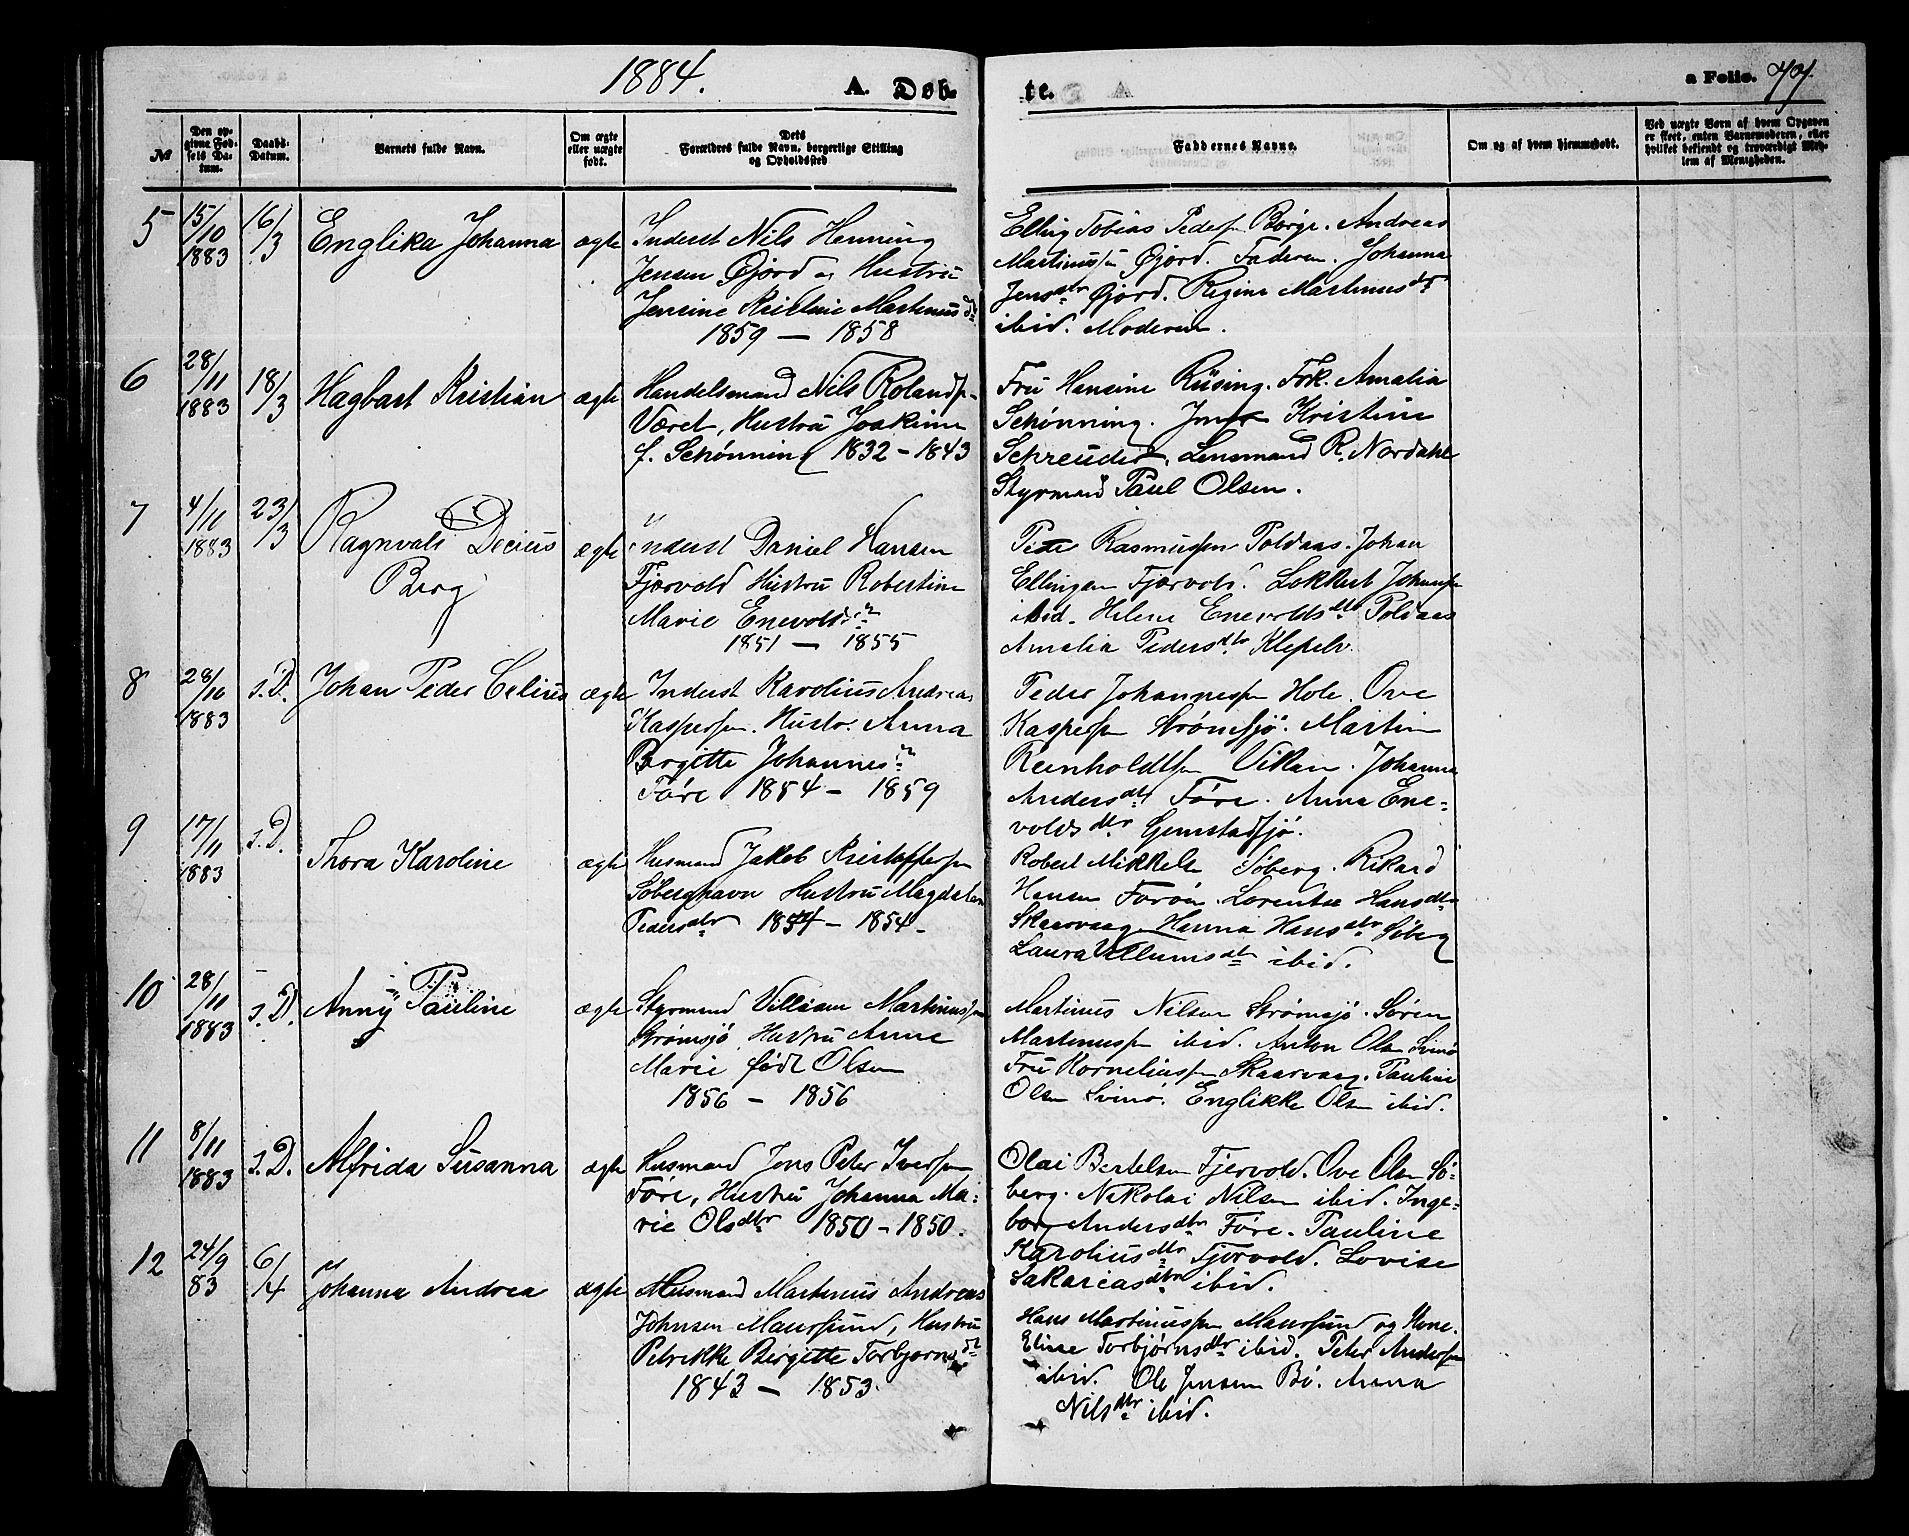 1884.
A. Døb-
te.
a Folio. 77.
№
Den op-
givne Fød-
sels Da-
tum.
Daabs-
Datum.
Barnets fulde Navn.
Om ægte
eller uægte
født.
Dets
Forældres fulde Navn, borgerlige Stilling
og Opholdssted
Faddernes Navne.
Om og af hvem hjemmedøbt.
Ved uægte Børn af hvem Opgaven
er skeet, enten Barnemoderen, eller
hvilket bekjendt og troværdigt Med-
lem af Menigheden.
5
15/10
1883
16/3
Englika Johanna
ægte
Inderst Nils Henning
Jensen Øjord og Hustru
Jensine Kristine Martinusdt
1859 — 1858
Elling Tobias Peders. Borge. Andreas
Martinussen Øjord. Faderen. Johanna
Jensdtr Øjord. Regine Martinusdt
ibid. Moderen.
6
28/11
1883
18/3
Hagbart Kristian
ægte
Handelsmand Nils Rolands.
Været, Hustru Joakime
f. Schønning 1832 - 1843
Fru Hansine Rüsing. Frk. Amalia
Schønning. Kristine
Schreuder, Lensmand R. Nordahl
Styrmand Paul Olsen.
7
4/11
1883
23/3
Ragnvald Decius
Berg
ægte
Inderst Daniel Hansen
Fjærvold Hustru Robertine
Marie Enevoldsn
1851 — 1855
Peder Rasmussen Poldaas. Johan
Ellingsen Fjærvold. Lokkert Johansen
ibid. Helene Enevoldsdtr Poldaas
Amalia Pedersdtr Klepelv.
8
28/10
1883
s.D.
Johan Peder Celius
ægte
Inderst Karolius Andreas
Kaspersen. Hustr. Anna
Birgitte Johannesn
Føre 1854 - 1859
Peder Johannessen Hole. Ove
Kaspersen Strømsjø. Martin
Reinholdtsen Vikan. Johanna
Andersdtr Føre. Anna Ene-
voldsdtr Grimstadsjø.
9
17/11
1883
s.D.
Thora Karoline
ægte
Husmand Jakob Kristoffersen
Søberghavn Hustru Magdalena
Pedersdtr 1854 - 1854.
Robert Mikkels. Søberg. Rikard
Hansen Forøen. Lorentse Hansdtr
Skaarvaag. Hanna Hansdtr Søberg
Laura Villumsdtr ibid.
10
28/11
1883
s.D.
Anny Pauline
ægte
Styrmand Villiam Martinussen
Strømsjø, Hustru Anne
Marie født Olsen
1856 - 1856
Martinus Nilsen Strømsjø. Søren
Martinussen ibid. Anton Olsen Svinø
Fru Korneliussen Skaarvaag. Pauline
Olsen Svinø. Englikke Olsen ibid.
11
8/11
1883
s.D.
Alfrida Susanna
ægte
Husmand Jens Peter Iversen
Føre, Hustru Johanna Ma-
rie Olsdtr 1850 - 1850.
Olai Bertelsen Fjervold. Ove Olsen Sø-
berg. Nikolai Nilsen ibid. Inge-
borg Andersdtr Føre. Pauline
Karoliusdtr Fjervold. Lovise
Sakariasdtr ibid.
12
24/9
83
6/4
Johanna Andrea
ægte
Husmand Martinus Andreas
Johnsen Maursund, Hustru
Petrikke Birgitte Torbjørnsdt
1843 - 1853.
Hans Martinussen Maursund og Kone.
Eline Torbjørnsdtr ibid. Peter Andersen
ibid. Ole Jensen Bø. Anna
Nilsdtr ibid.